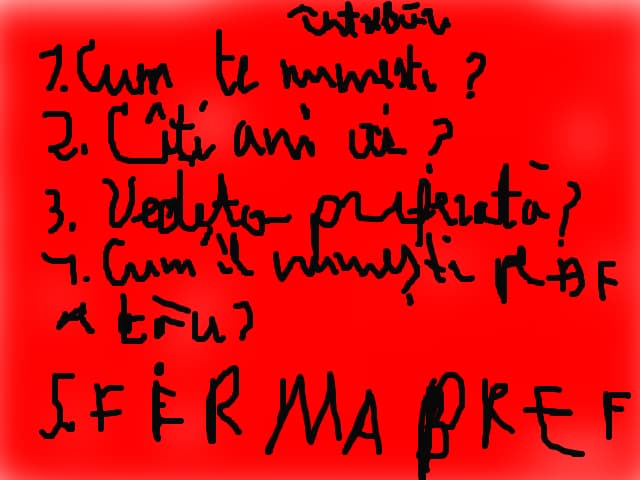 întrebări
1. Cum te numești ?
2. Cîți ani ai ?
3. Vedeta preferată ?
4. Cum îl numești pe BF
al tău ?
5. FERMA PREF